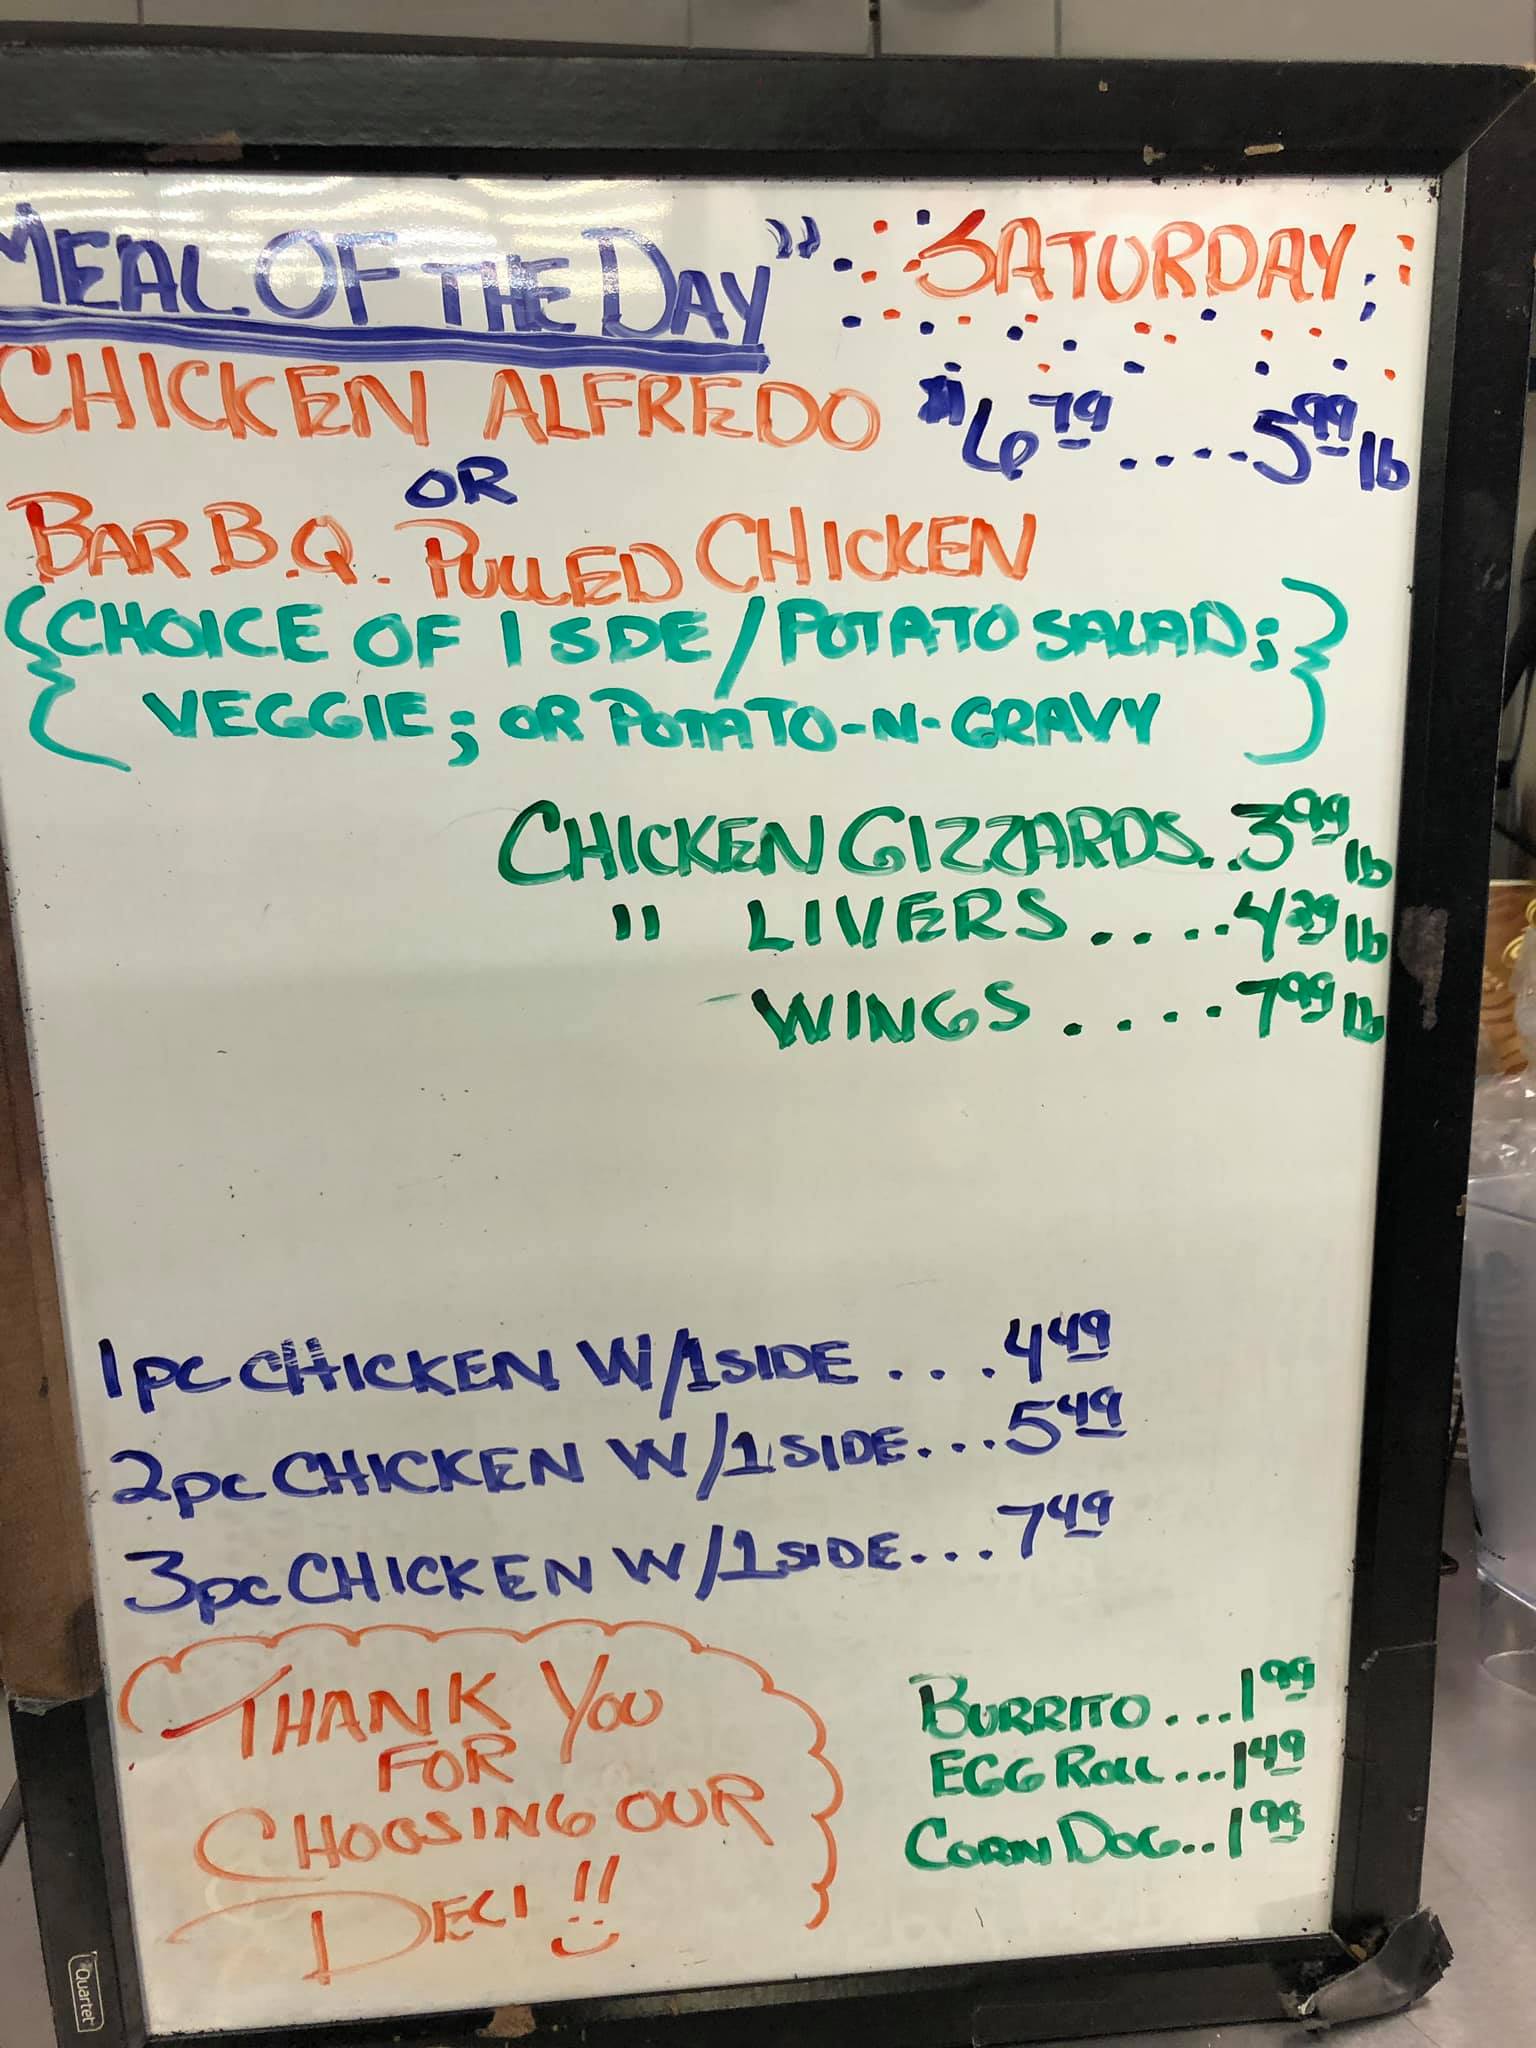 MEAL OF THE DAY" SATURDAY
CHICKEN ALFREDO $6.79....5.99 lb
OR
BAR B.Q. PULLED CHICKEN
{CHOICE OF 1 SDE/POTATO SALAD;}
VEGGIE; OR POTATO-N-GRAVY
CHICKEN GIZZARDS..3.99 lb
" LIVERS....4.29 lb
WINGS....7.99 lb
1pc CHICKEN W/1SIDE...4.49
2pc CHICKEN W/1SIDE...5.49
3pc CHICKEN W/1SIDE...7.49
THANK YOU
FOR
CHOOSING OUR
DELI!!
BURRITO...1.99
EGG ROLL...1.49
CORN DOG..1.99
Quartet